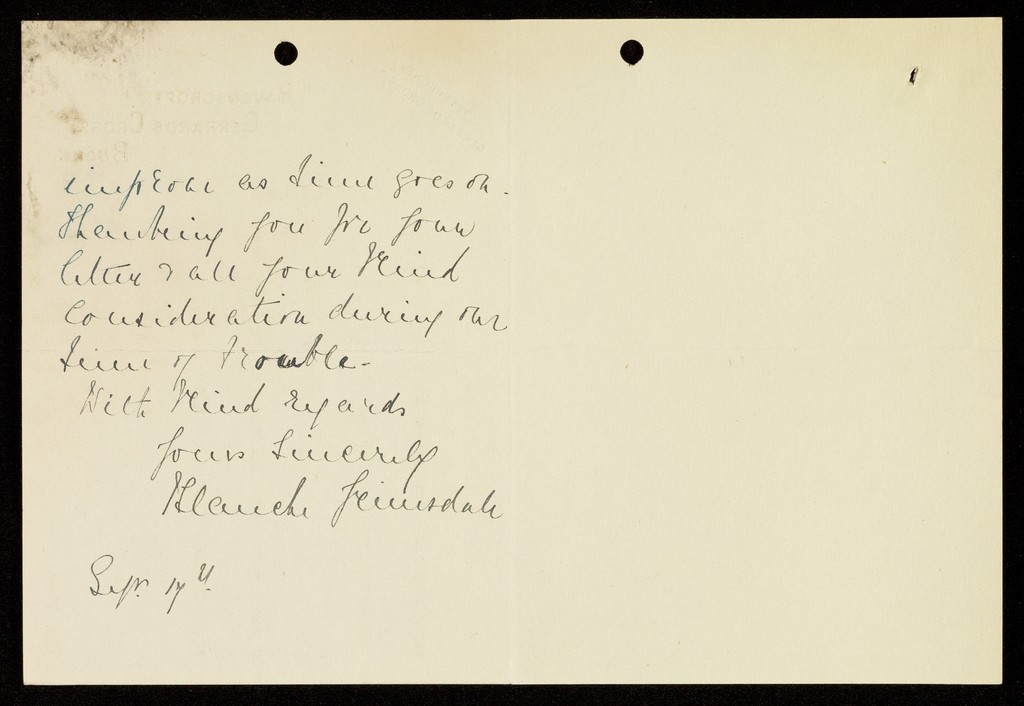 improve as time goes on.
Thanking you for your
letter & all your kind
consideration during our
time of trouble -
With kind regards
yours sincerely
Blanche
Sept. 17th